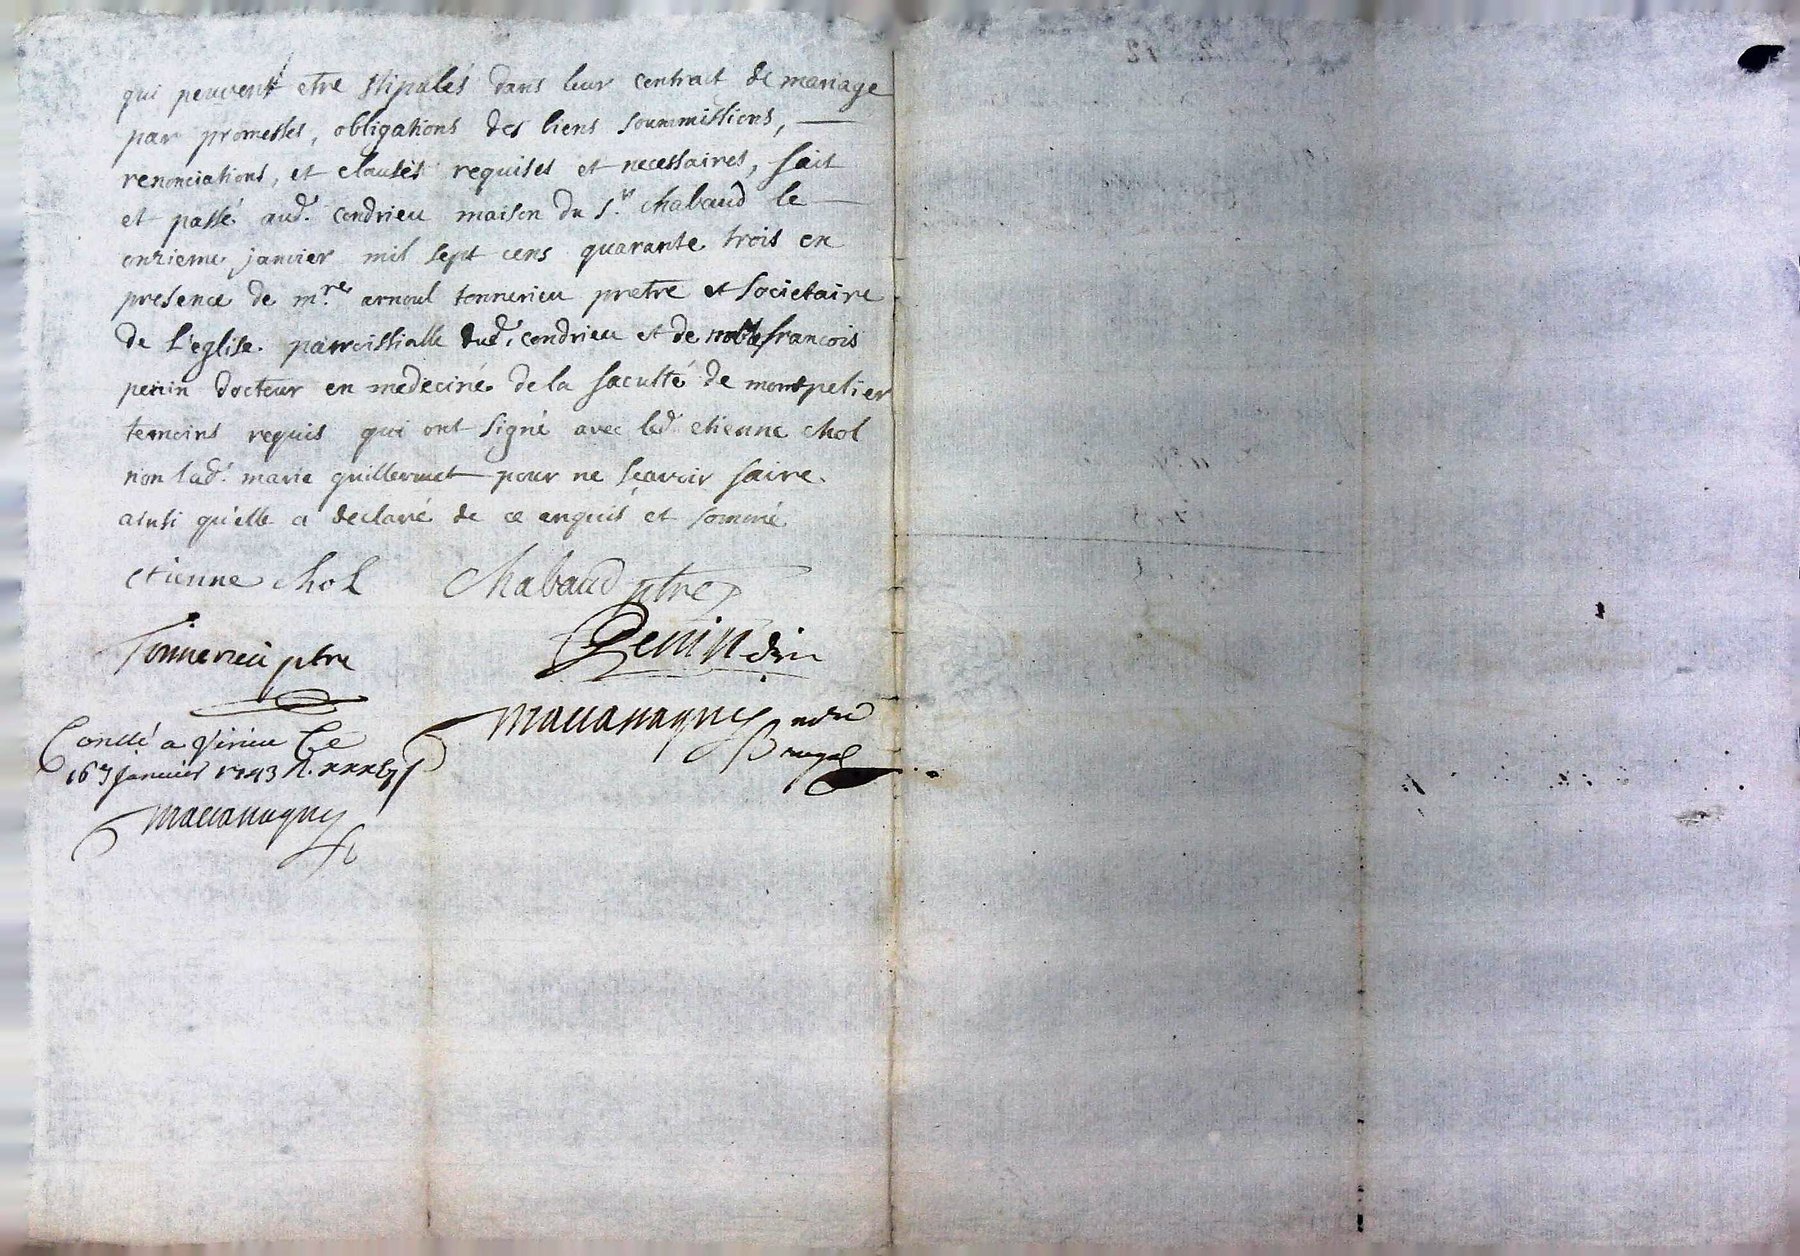 qui peuvent etre stipulés dans leur contrait de mariage
par promesses, obligations des biens soummissions,
renonciations, et clauses requises et necessaires, fait
et passé aud. condrieu maison du s.r chabaud le
onzieme janvier mil sept cens quarante trois en
presence de m.re arnoul tonnerieu pretre et societaire
de l'eglise. parroissialle dud. condrieu et de noble francois
penin docteur en medecine de la faculté de montpelier
temoins requis qui ont signé avec led. etienne chol
non lad. marie guillermet pour ne scavoir faire.
ainsi qu'elle a declaré de ce enquis et sommé
etienne chol Chabaud ptre
Tonnerieu ptre
Penin
Maccanaguy
Conllé a Virieu Le
16e Janvier 1743
Maccanaguy